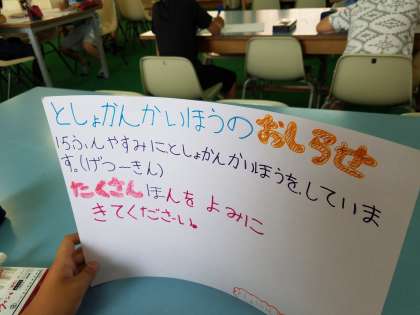 としょかんかいほうのおしらせ
15ふんやすみにとしょかんかいほうを、していま
す。(げつーきん)
たくさんほんをよみに
きてください。